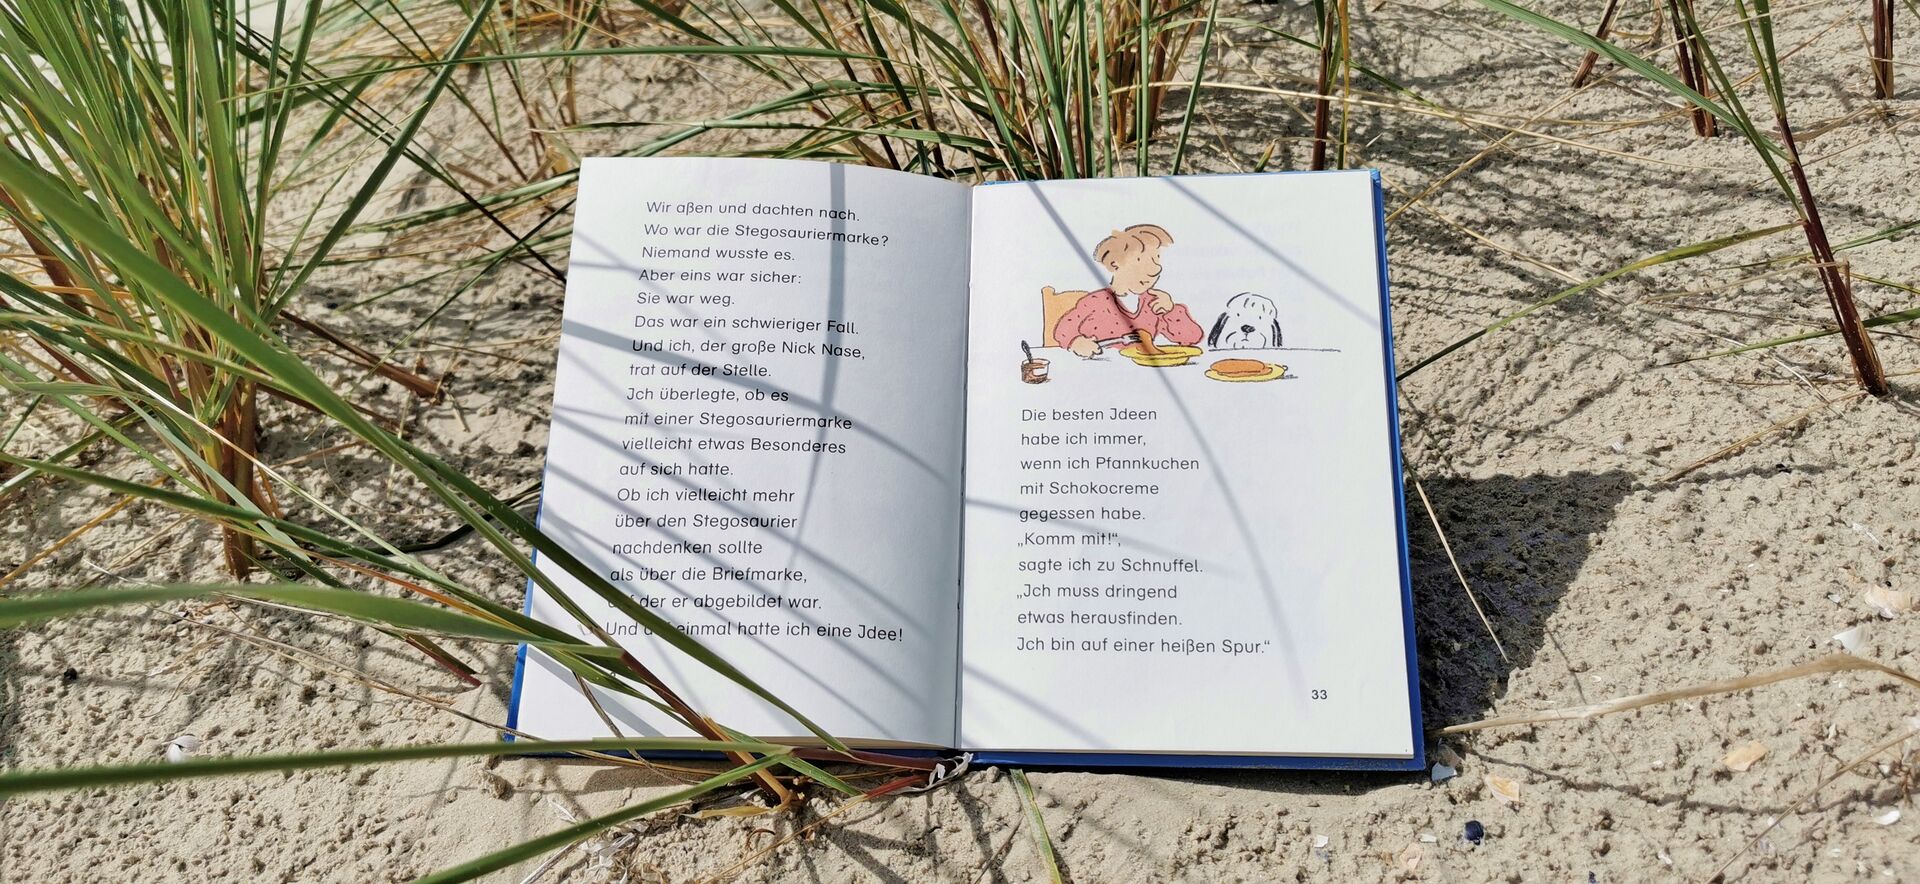 Wir aßen und dachten nach.
Wo war die Stegosauriermarke?
Niemand wusste es.
Aber eins war sicher:
Sie war weg.
Das war ein schwieriger Fall.
Und ich, der große Nick Nase,
trat auf der Stelle.
Jch überlegte, ob es
mit einer Stegosauriermarke
vielleicht etwas Besonderes
auf sich hatte.
Ob ich vielleicht mehr
über den Stegosaurier
nachdenken sollte
als über die Briefmarke,
auf der er abgebildet war.
Und auf einmal hatte ich eine Jdee!
Die besten Jdeen
habe ich immer,
wenn ich Pfannkuchen
mit Schokocreme
gegessen habe.
„Komm mit!“,
sagte ich zu Schnuffel.
„Jch muss dringend
etwas herausfinden.
Jch bin auf einer heißen Spur.“
33